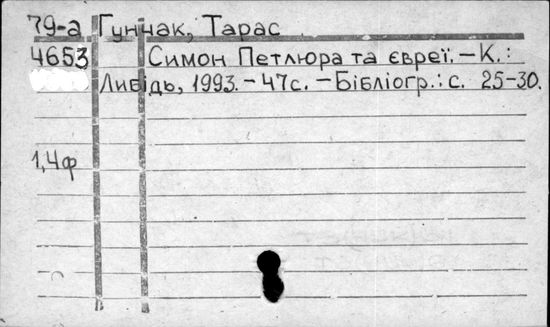 79-а Гунчак, Тарас
4653 Симон Петлюра та євреї. – К. :
Либідь, 1993. – 47с. – Бібліогр.: с. 25-30.
1,4ф